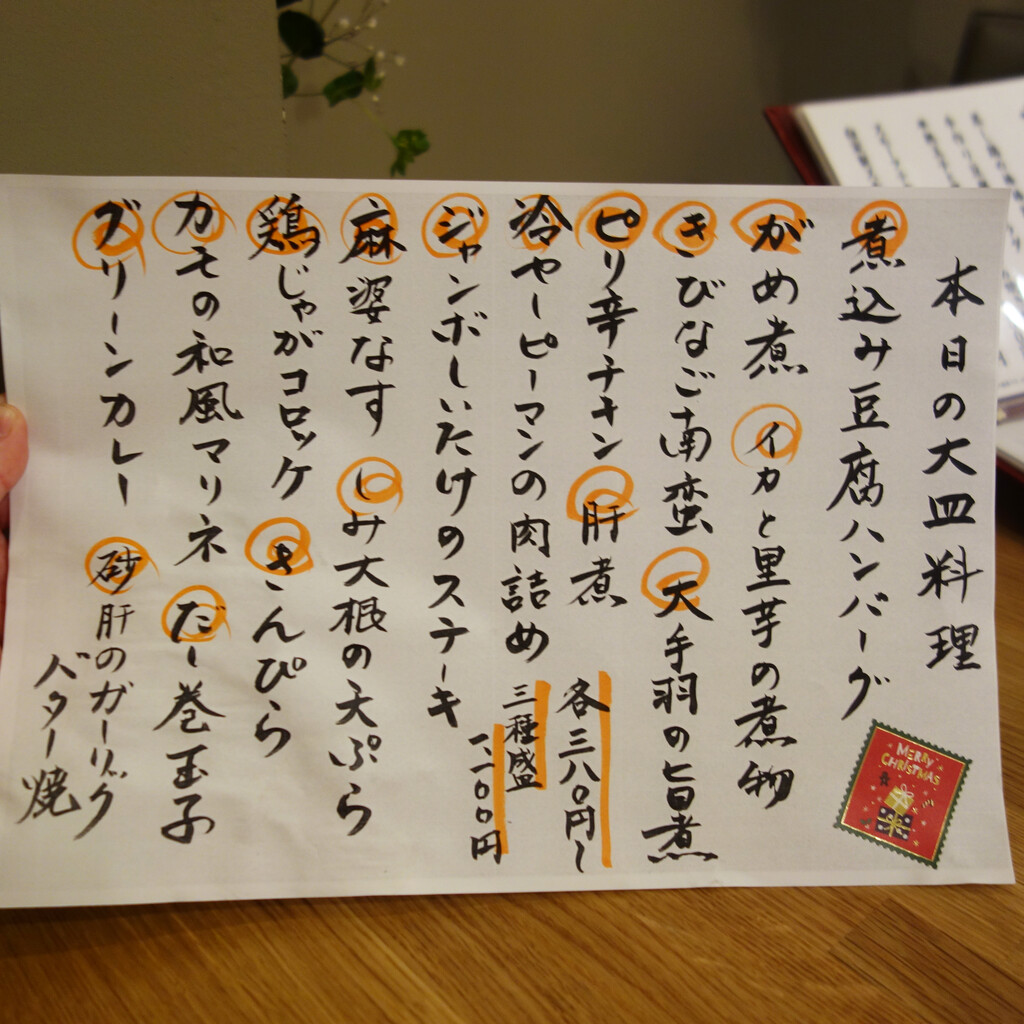 本日の大皿料理
煮込み豆腐ハンバーグ
がめ煮 イカと里芋の煮物
きびなご南蛮 大手羽の旨煮
ピリ辛チキン 肝煮
各三八〇円〜
冷やしピーマンの肉詰め
三種盛
一、二〇〇円
ジャンボしいたけのステーキ
麻婆なす しみ大根の天ぷら
鶏じゃがコロッケ きんぴら
カモの和風マリネ だし巻玉子
グリーンカレー 砂肝のガーリック
バター焼
MERRY
CHRISTMAS